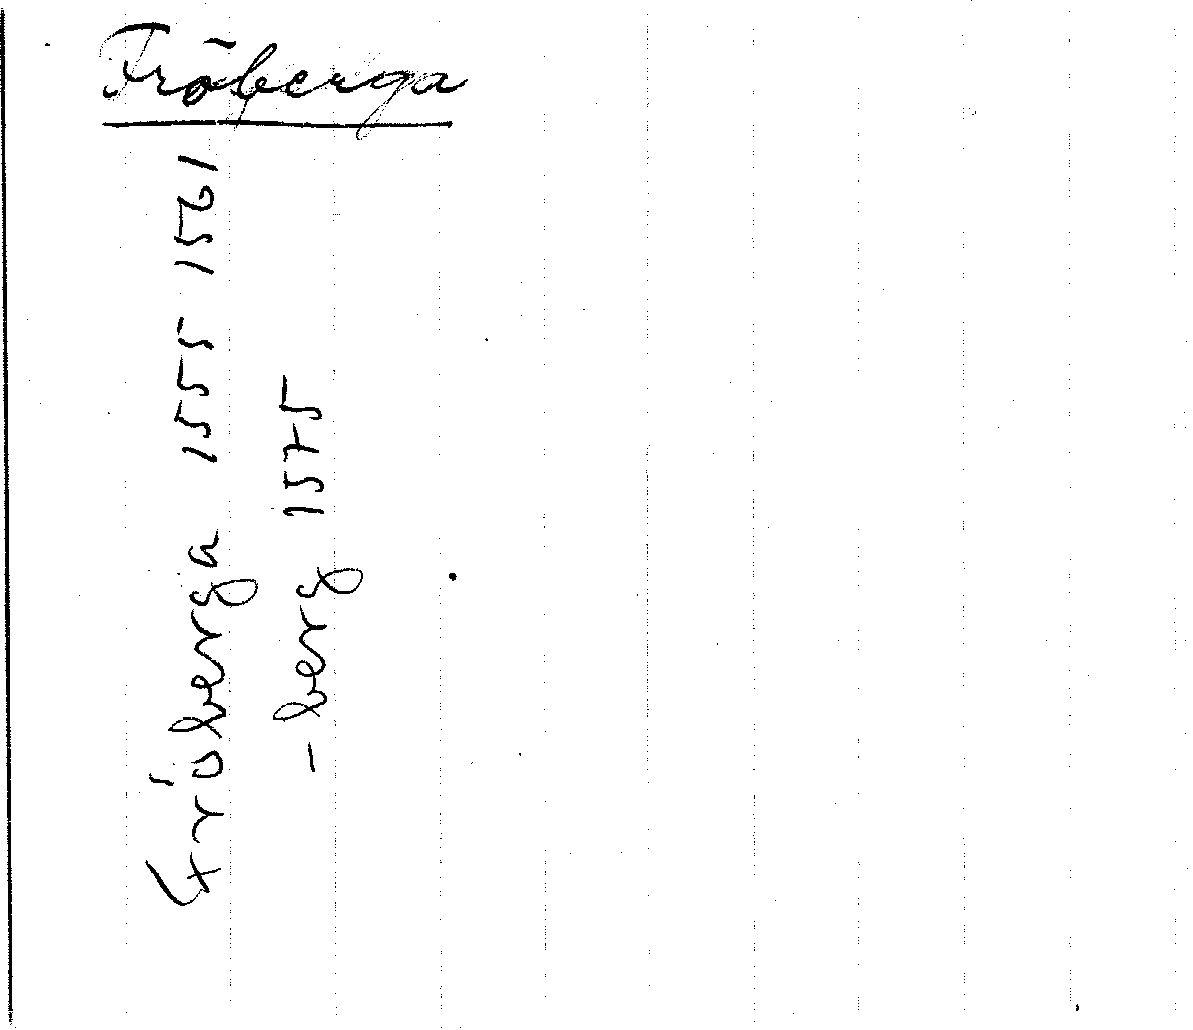 Fröberga
Fröberga 1555 1561
- berg 1575